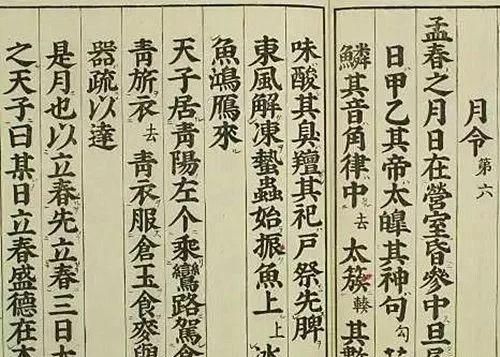 月令 第六
孟春之月日在營室昏參中旦尾
日甲乙其帝太皥其神句 勾
鱗其音角律中 去 太簇 輳 其數
味酸其臭羶其祀戶祭先脾
東風解凍蟄蟲始振魚上 上 冰
魚鴻鴈來
天子居青陽左个乘鸞路駕倉
青旂衣 去 青衣服倉玉食麥與
器疏以達
是月也以立春先立春三日大
之天子曰某日立春盛德在木